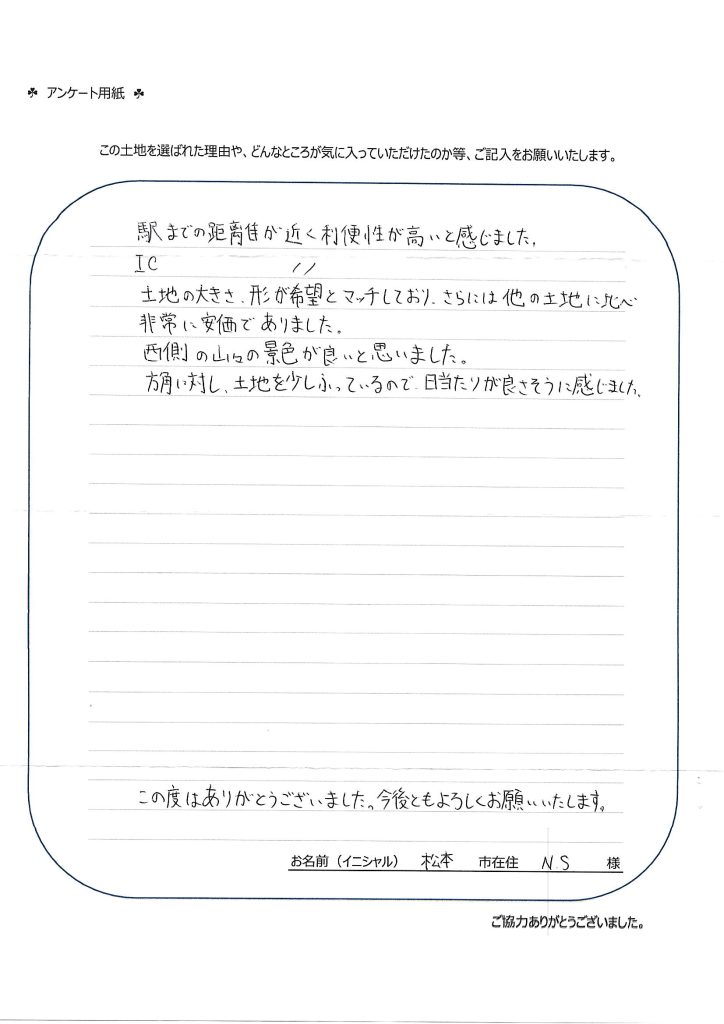 ☘ アンケート用紙 ☘
この土地を選ばれた理由や、どんなところが気に入っていただけたのか等、ご記入をお願いいたします。
駅までの距離が近く利便性が高いと感じました。
IC 〃
土地の大きさ、形が希望とマッチしており、さらには他の土地に比べ
非常に安価でありました。
西側の山々の景色が良いと思いました。
方角に対し、土地を少しふっているので、日当たりが良さそうに感じました。
この度はありがとうございました。今後ともよろしくお願いいたします。
お名前（イニシャル） 松本 市在住 N.S 様
ご協力ありがとうございました。